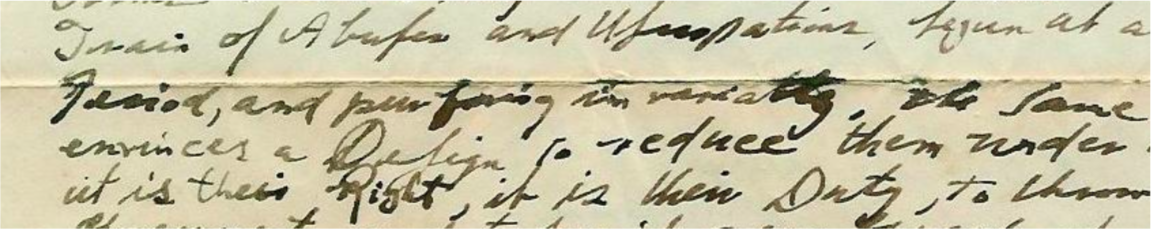 Train of Abuses and Usurpations, begun at a
Period, and pursuing invariably, the same
envinces a Design to reduce them under
it is their Right, it is their Duty, to throw